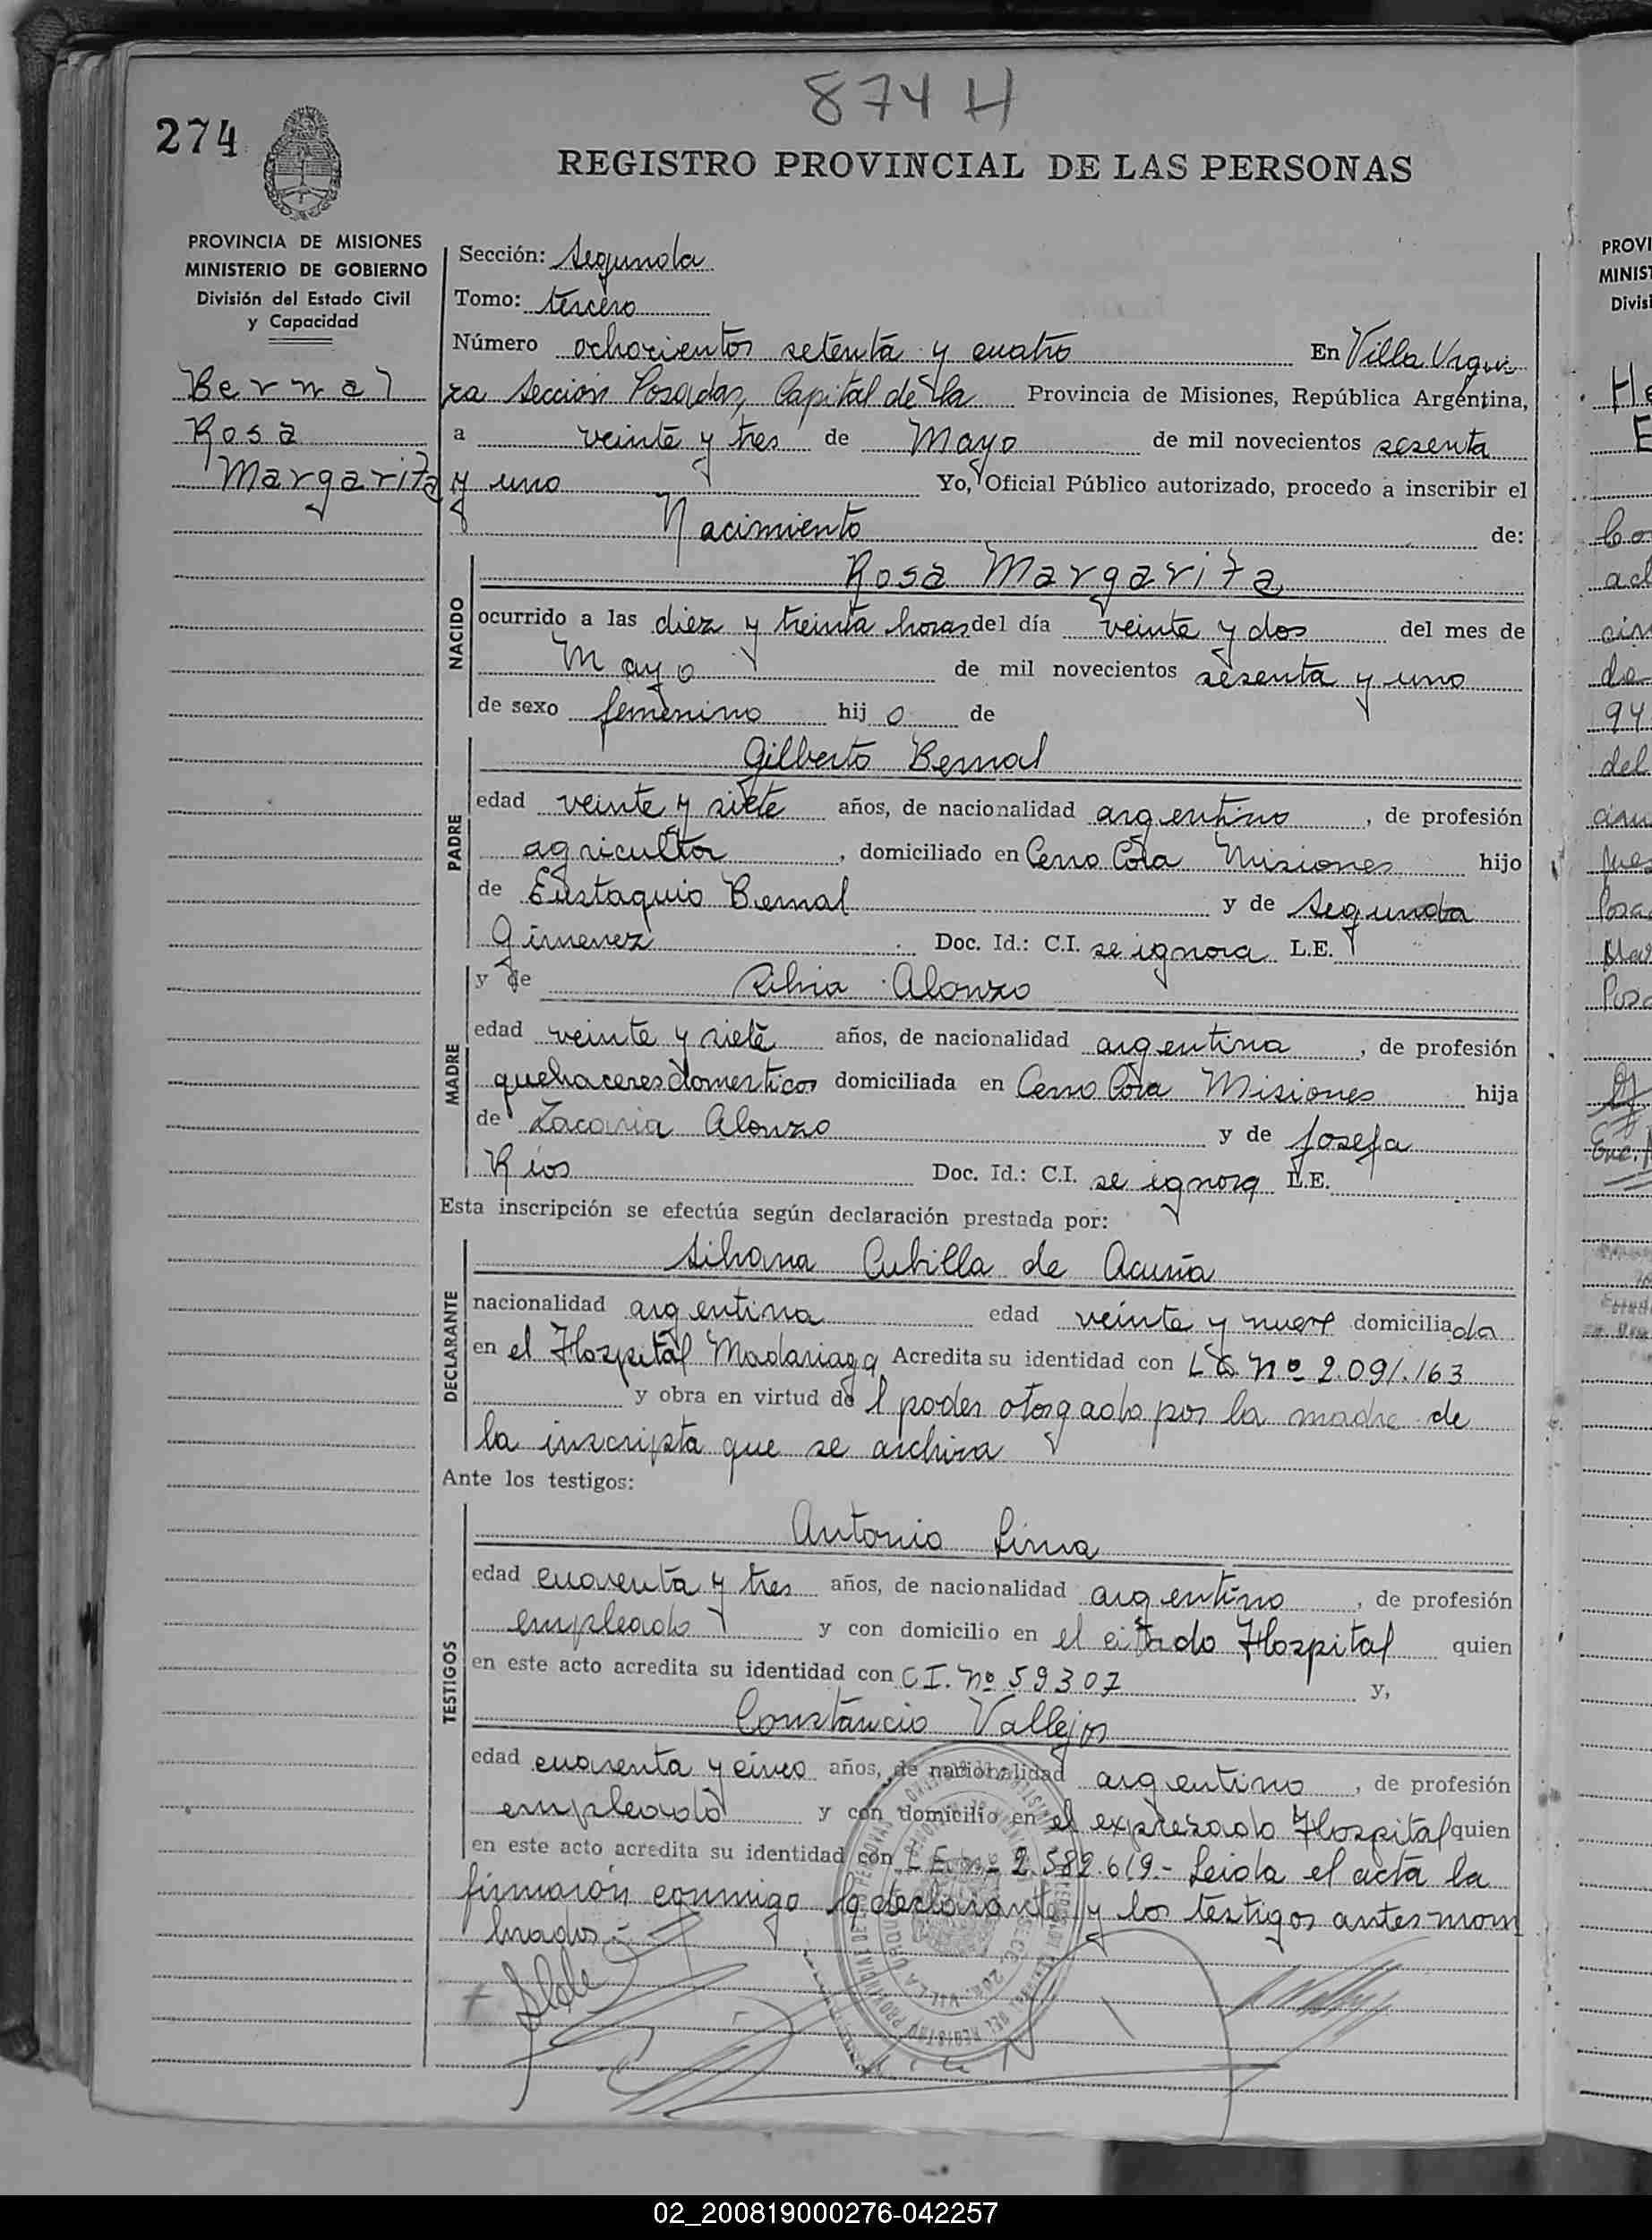 874 H
274
REGISTRO PROVINCIAL DE LAS PERSONAS
PROVINCIA DE MISIONES
MINISTERIO DE GOBIERNO
División del Estado Civil
y Capacidad
Bernal
Rosa
Margarita
Sección: Segunda
Tomo: tercero
Número ochocientos setenta y cuatro En Villa Urqui
za Sección Posadas, Capital de la Provincia de Misiones, República Argentina,
a veinte y tres de Mayo de mil novecientos sesenta
y uno Yo, Oficial Público autorizado, procedo a inscribir el
Nacimiento de:
NACIDO
Rosa Margarita
ocurrido a las diez y treinta horas del día veinte y dos del mes de
Mayo de mil novecientos sesenta y uno
de sexo femenino hij o de
PADRE
Gilberto Bernal
edad veinte y siete años, de nacionalidad argentino, de profesión
agricultor, domiciliado en Cerro Cora Misiones hijo
de Eustaquio Bernal y de Segunda
Gimenez Doc. Id.: C.I. se ignora L.E.
MADRE
y de Silvia Alonzo
edad veinte y siete años, de nacionalidad argentina, de profesión
quehaceres domesticos domiciliada en Cerro Cora Misiones hija
de Zacaria Alonzo y de Josefa
Rios Doc. Id.: C.I. se ignora L.E.
Esta inscripción se efectúa según declaración prestada por:
DECLARANTE
Silvana Cubilla de Acuña
nacionalidad argentina edad veinte y nueve domiciliada
en el Hospital Madariaga Acredita su identidad con Nº 2.091.163
y obra en virtud de l poder otorgado por la madre de
la inscripta que se archiva
Ante los testigos:
TESTIGOS
Antonio Lima
edad cuarenta y tres años, de nacionalidad argentino, de profesión
empleado y con domicilio en el citado Hospital quien
en este acto acredita su identidad con C I. Nº 59307 y,
Constancio Vallejos
edad cuarenta y cinco años, de nacionalidad argentino, de profesión
empleado y con domicilio en el expresado Hospital quien
en este acto acredita su identidad con L E Nº 2.582.619.- Leida el acta la
firmaron conmigo la declarante y los testigos antes nom
brados.-
PROVI
MINIST
Divis
02_200819000276-042257